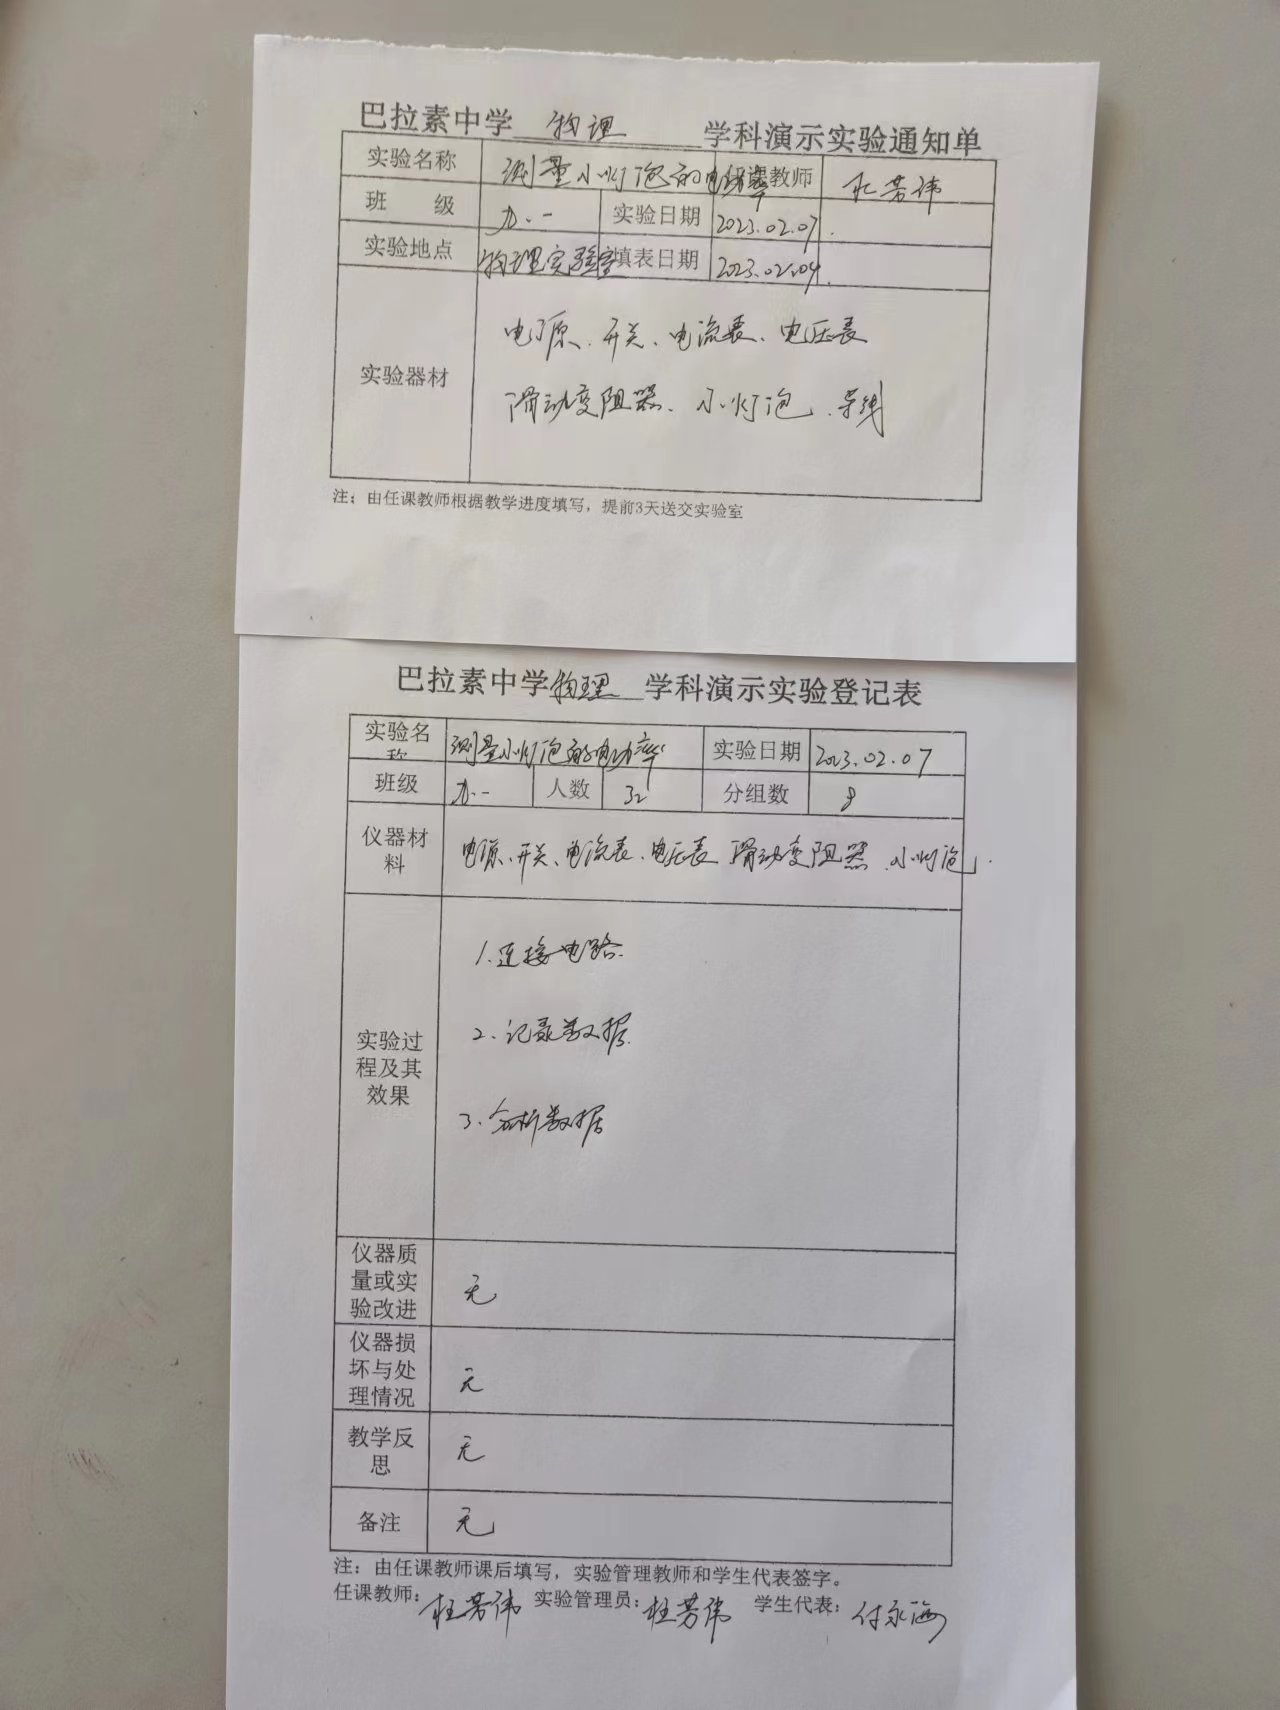 巴拉素中学 物理 学科演示实验通知单
实验名称 测量小灯泡的电功率 任课教师 杜芳伟
班 级 九.一 实验日期 2023.02.07.
实验地点 物理实验室 填表日期 2023.02.04.
实验器材 电源、开关、电流表、电压表
滑动变阻器、小灯泡、导线
注：由任课教师根据教学进度填写，提前3天送交实验室
巴拉素中学 物理 学科演示实验登记表
实验名称 测量小灯泡的电功率 实验日期 2023.02.07
班级 九.一 人数 32 分组数 8
仪器材料 电源、开关、电流表、电压表 滑动变阻器、小灯泡.
实验过程及其效果
1.连接电路.
2.记录数据.
3.分析数据
仪器质量或实验改进 无
仪器损坏与处理情况 无
教学反思 无
备注 无
注：由任课教师课后填写，实验管理教师和学生代表签字。
任课教师：杜芳伟 实验管理员：杜芳伟 学生代表：付永海